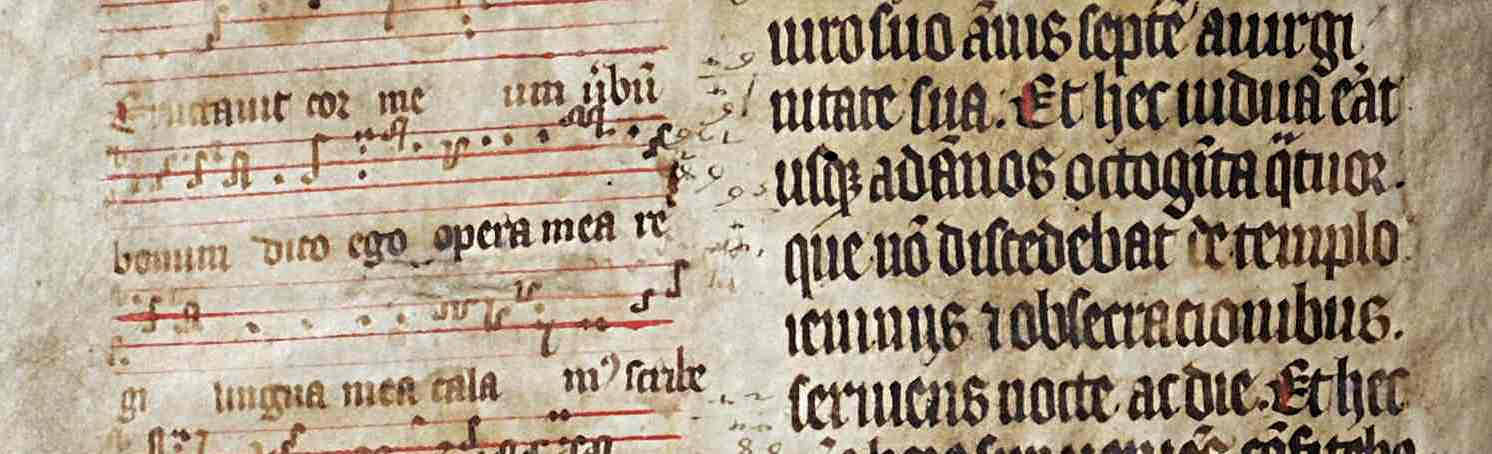 Eructauit cor me um ũbũ
bonum dico ego opera mea re
gi lingua mea cala mꝰ scribe
uiro suo ãnis septẽ a uirgi
nitate sua. Et hec uidua erat
usqꝫ ad ãnos octogĩta qͣtuor.
que nõ discedebat de templo
ieiuniis ⁊ obsecracionibus.
seruiens nocte ac die. Et hec